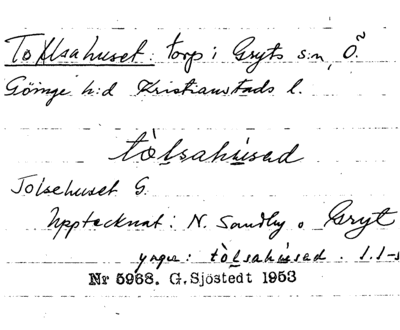 Tolsahuset: torp i Gryts s:n, Ö.
Göinge h:d Kristianstads l.
tòlsahùsad
Tolsehuset G.
Upptecknat: N. Sandby o Gryt
yngre: tòlsahùsad. l.l-s
Nr 5968. G. Sjöstedt 1953